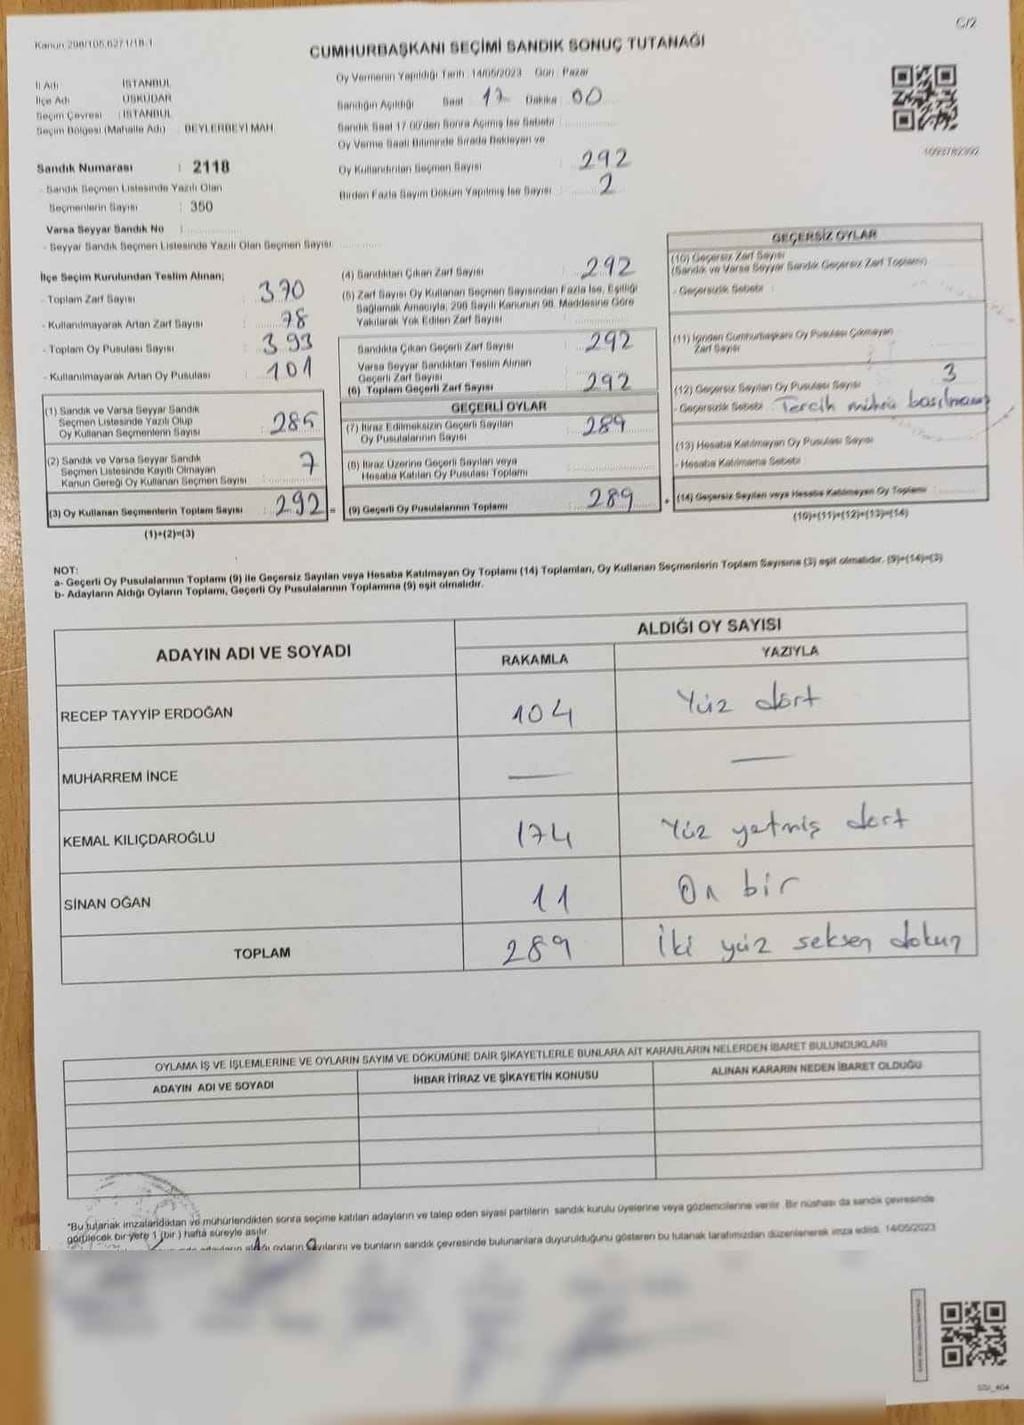 C/2
Kanun 298/105,6271/18-1
CUMHURBAŞKANI SEÇİMİ SANDIK SONUÇ TUTANAĞI
İl Adı : İSTANBUL
İlçe Adı : ÜSKÜDAR
Seçim Çevresi : İSTANBUL
Seçim Bölgesi (Mahalle Adı) : BEYLERBEYİ MAH
Oy Vermenin Yapıldığı Tarih : 14/05/2023 Gün : Pazar
Sandığın Açıldığı Saat 17 Dakika 00
Sandık Saat 17.00'den Sonra Açılmış İse Sebebi
Oy Verme Saati Bitiminde Sırada Bekleyen ve
Oy Kullandırılan Seçmen Sayısı : 292
Birden Fazla Sayım Döküm Yapılmış İse Sayısı : 2
Sandık Numarası : 2118
- Sandık Seçmen Listesinde Yazılı Olan
Seçmenlerin Sayısı : 350
Varsa Seyyar Sandık No :
- Seyyar Sandık Seçmen Listesinde Yazılı Olan Seçmen Sayısı
İlçe Seçim Kurulundan Teslim Alınan;
- Toplam Zarf Sayısı : 370
- Kullanılmayarak Artan Zarf Sayısı : 78
- Toplam Oy Pusulası Sayısı : 393
- Kullanılmayarak Artan Oy Pusulası : 101
(1) Sandık ve Varsa Seyyar Sandık
Seçmen Listesinde Yazılı Olup
Oy Kullanan Seçmenlerin Sayısı : 285
(2) Sandık ve Varsa Seyyar Sandık
Seçmen Listesinde Kayıtlı Olmayan
Kanun Gereği Oy Kullanan Seçmen Sayısı : 7
(3) Oy Kullanan Seçmenlerin Toplam Sayısı : 292 =
(1)+(2)=(3)
(4) Sandıktan Çıkan Zarf Sayısı : 292
(5) Zarf Sayısı Oy Kullanan Seçmen Sayısından Fazla İse, Eşitliği
Sağlamak Amacıyla, 298 Sayılı Kanunun 98. Maddesine Göre
Yakılarak Yok Edilen Zarf Sayısı :
Sandıkta Çıkan Geçerli Zarf Sayısı : 292
Varsa Seyyar Sandıktan Teslim Alınan
Geçerli Zarf Sayısı
(6) Toplam Geçerli Zarf Sayısı : 292
GEÇERLİ OYLAR
(7) İtiraz Edilmeksizin Geçerli Sayılan
Oy Pusulalarının Sayısı : 289
(8) İtiraz Üzerine Geçerli Sayılan veya
Hesaba Katılan Oy Pusulası Toplamı :
(9) Geçerli Oy Pusulalarının Toplamı : 289 +
GEÇERSİZ OYLAR
(10) Geçersiz Zarf Sayısı
(Sandık ve Varsa Seyyar Sandık Geçersiz Zarf Toplamı)
- Geçersizlik Sebebi :
(11) İçinden Cumhurbaşkanı Oy Pusulası Çıkmayan
Zarf Sayısı
(12) Geçersiz Sayılan Oy Pusulası Sayısı 3
- Geçersizlik Sebebi : Tercih mührü basılmamış
(13) Hesaba Katılmayan Oy Pusulası Sayısı
- Hesaba Katılmama Sebebi
(14) Geçersiz Sayılan veya Hesaba Katılmayan Oy Toplamı :
(10)+(11)+(12)+(13)=(14)
NOT:
a- Geçerli Oy Pusulalarının Toplamı (9) ile Geçersiz Sayılan veya Hesaba Katılmayan Oy Toplamı (14) Toplamları, Oy Kullanan Seçmenlerin Toplam Sayısına (3) eşit olmalıdır. (9)+(14)=(3)
b- Adayların Aldığı Oyların Toplamı, Geçerli Oy Pusulalarının Toplamına (9) eşit olmalıdır.
ADAYIN ADI VE SOYADI
ALDIĞI OY SAYISI
RAKAMLA YAZIYLA
RECEP TAYYİP ERDOĞAN 104 Yüz dört
MUHARREM İNCE — —
KEMAL KILIÇDAROĞLU 174 Yüz yetmiş dört
SİNAN OĞAN 11 On bir
TOPLAM 289 İki yüz seksen dokuz
OYLAMA İŞ VE İŞLEMLERİNE VE OYLARIN SAYIM VE DÖKÜMÜNE DAİR ŞİKAYETLERLE BUNLARA AİT KARARLARIN NELERDEN İBARET BULUNDUKLARI
ADAYIN ADI VE SOYADI İHBAR İTİRAZ VE ŞİKAYETİN KONUSU ALINAN KARARIN NEDEN İBARET OLDUĞU
"Bu tutanak imzalandıktan ve mühürlendikten sonra seçime katılan adayların ve talep eden siyasi partilerin sandık kurulu üyelerine veya gözlemcilerine verilir. Bir nüshası da sandık çevresinde
görülecek bir yere 1 (bir ) hafta süreyle asılır
oyların sayılarını ve bunların sandık çevresinde bulunanlara duyurulduğunu gösteren bu tutanak tarafımızdan düzenlenerek imza edildi. 14/05/2023